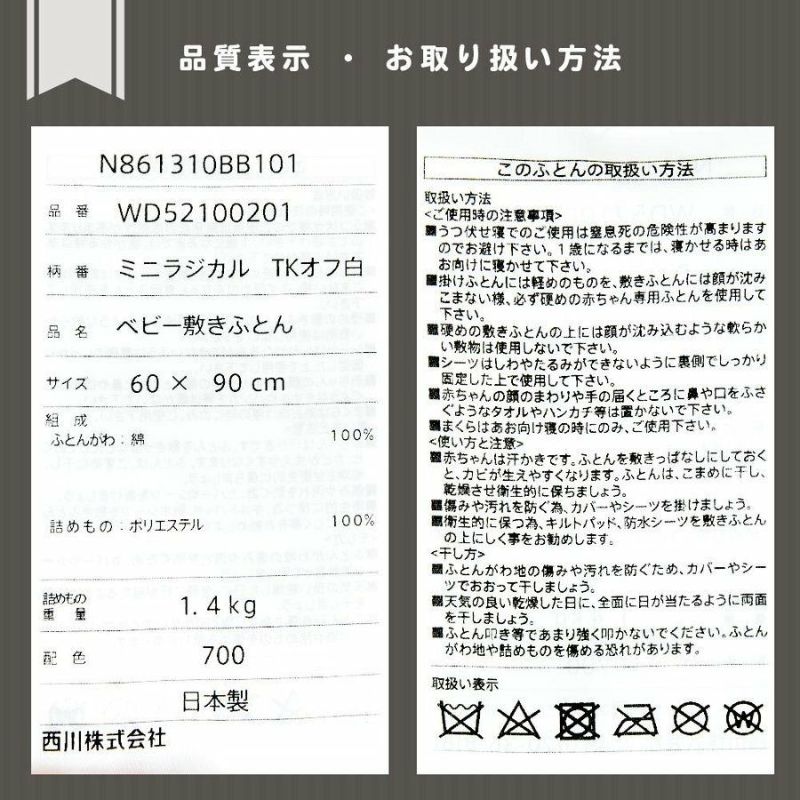 品質表示 ・ お取り扱い方法
N861310BB101
品番 WD52100201
柄番 ミニラジカル TKオフ白
品名 ベビー敷きふとん
サイズ 60 × 90 cm
組成
ふとんがわ: 綿 100%
詰めもの: ポリエステル 100%
詰めもの
重量 1.4kg
配色 700
日本製
西川株式会社
このふとんの取扱い方法
取扱い方法
<ご使用時の注意事項>
■うつ伏せ寝でのご使用は窒息死の危険性が高まります
のでお避け下さい。1歳になるまでは、寝かせる時はあ
お向けに寝かせて下さい。
■掛けふとんには軽めのものを、敷きふとんには顔が沈み
こまない様、必ず硬めの赤ちゃん専用ふとんを使用して
下さい。
■硬めの敷きふとんの上には顔が沈み込むような柔らか
い敷物は使用しないで下さい。
■シーツはしわやたるみができないように裏側でしっかり
固定した上で使用して下さい。
■赤ちゃんの顔のまわりや手の届くところに鼻や口をふさ
ぐようなタオルやハンカチ等は置かないで下さい。
■まくらはあお向け寝の時にのみ、ご使用下さい。
<使い方と注意>
■赤ちゃんは汗かきです。ふとんを敷きっぱなしにしておく
と、カビが生えやすくなります。ふとんは、こまめに干し、
乾燥させ衛生的に保ちましょう。
■傷みや汚れを防ぐ為、カバーやシーツを掛けましょう。
■衛生的に保つ為、キルトパッド、防水シーツを敷きふとん
の上にしく事をお勧めします。
<干し方>
■ふとんがわ地の傷みや汚れを防ぐため、カバーやシー
ツでおおって干しましょう。
■天気の良い乾燥した日に、全面に日が当たるように両面
を干しましょう。
■ふとん叩き等であまり強く叩かないでください。ふとん
がわ地や詰めものを傷める恐れがあります。
取扱い表示